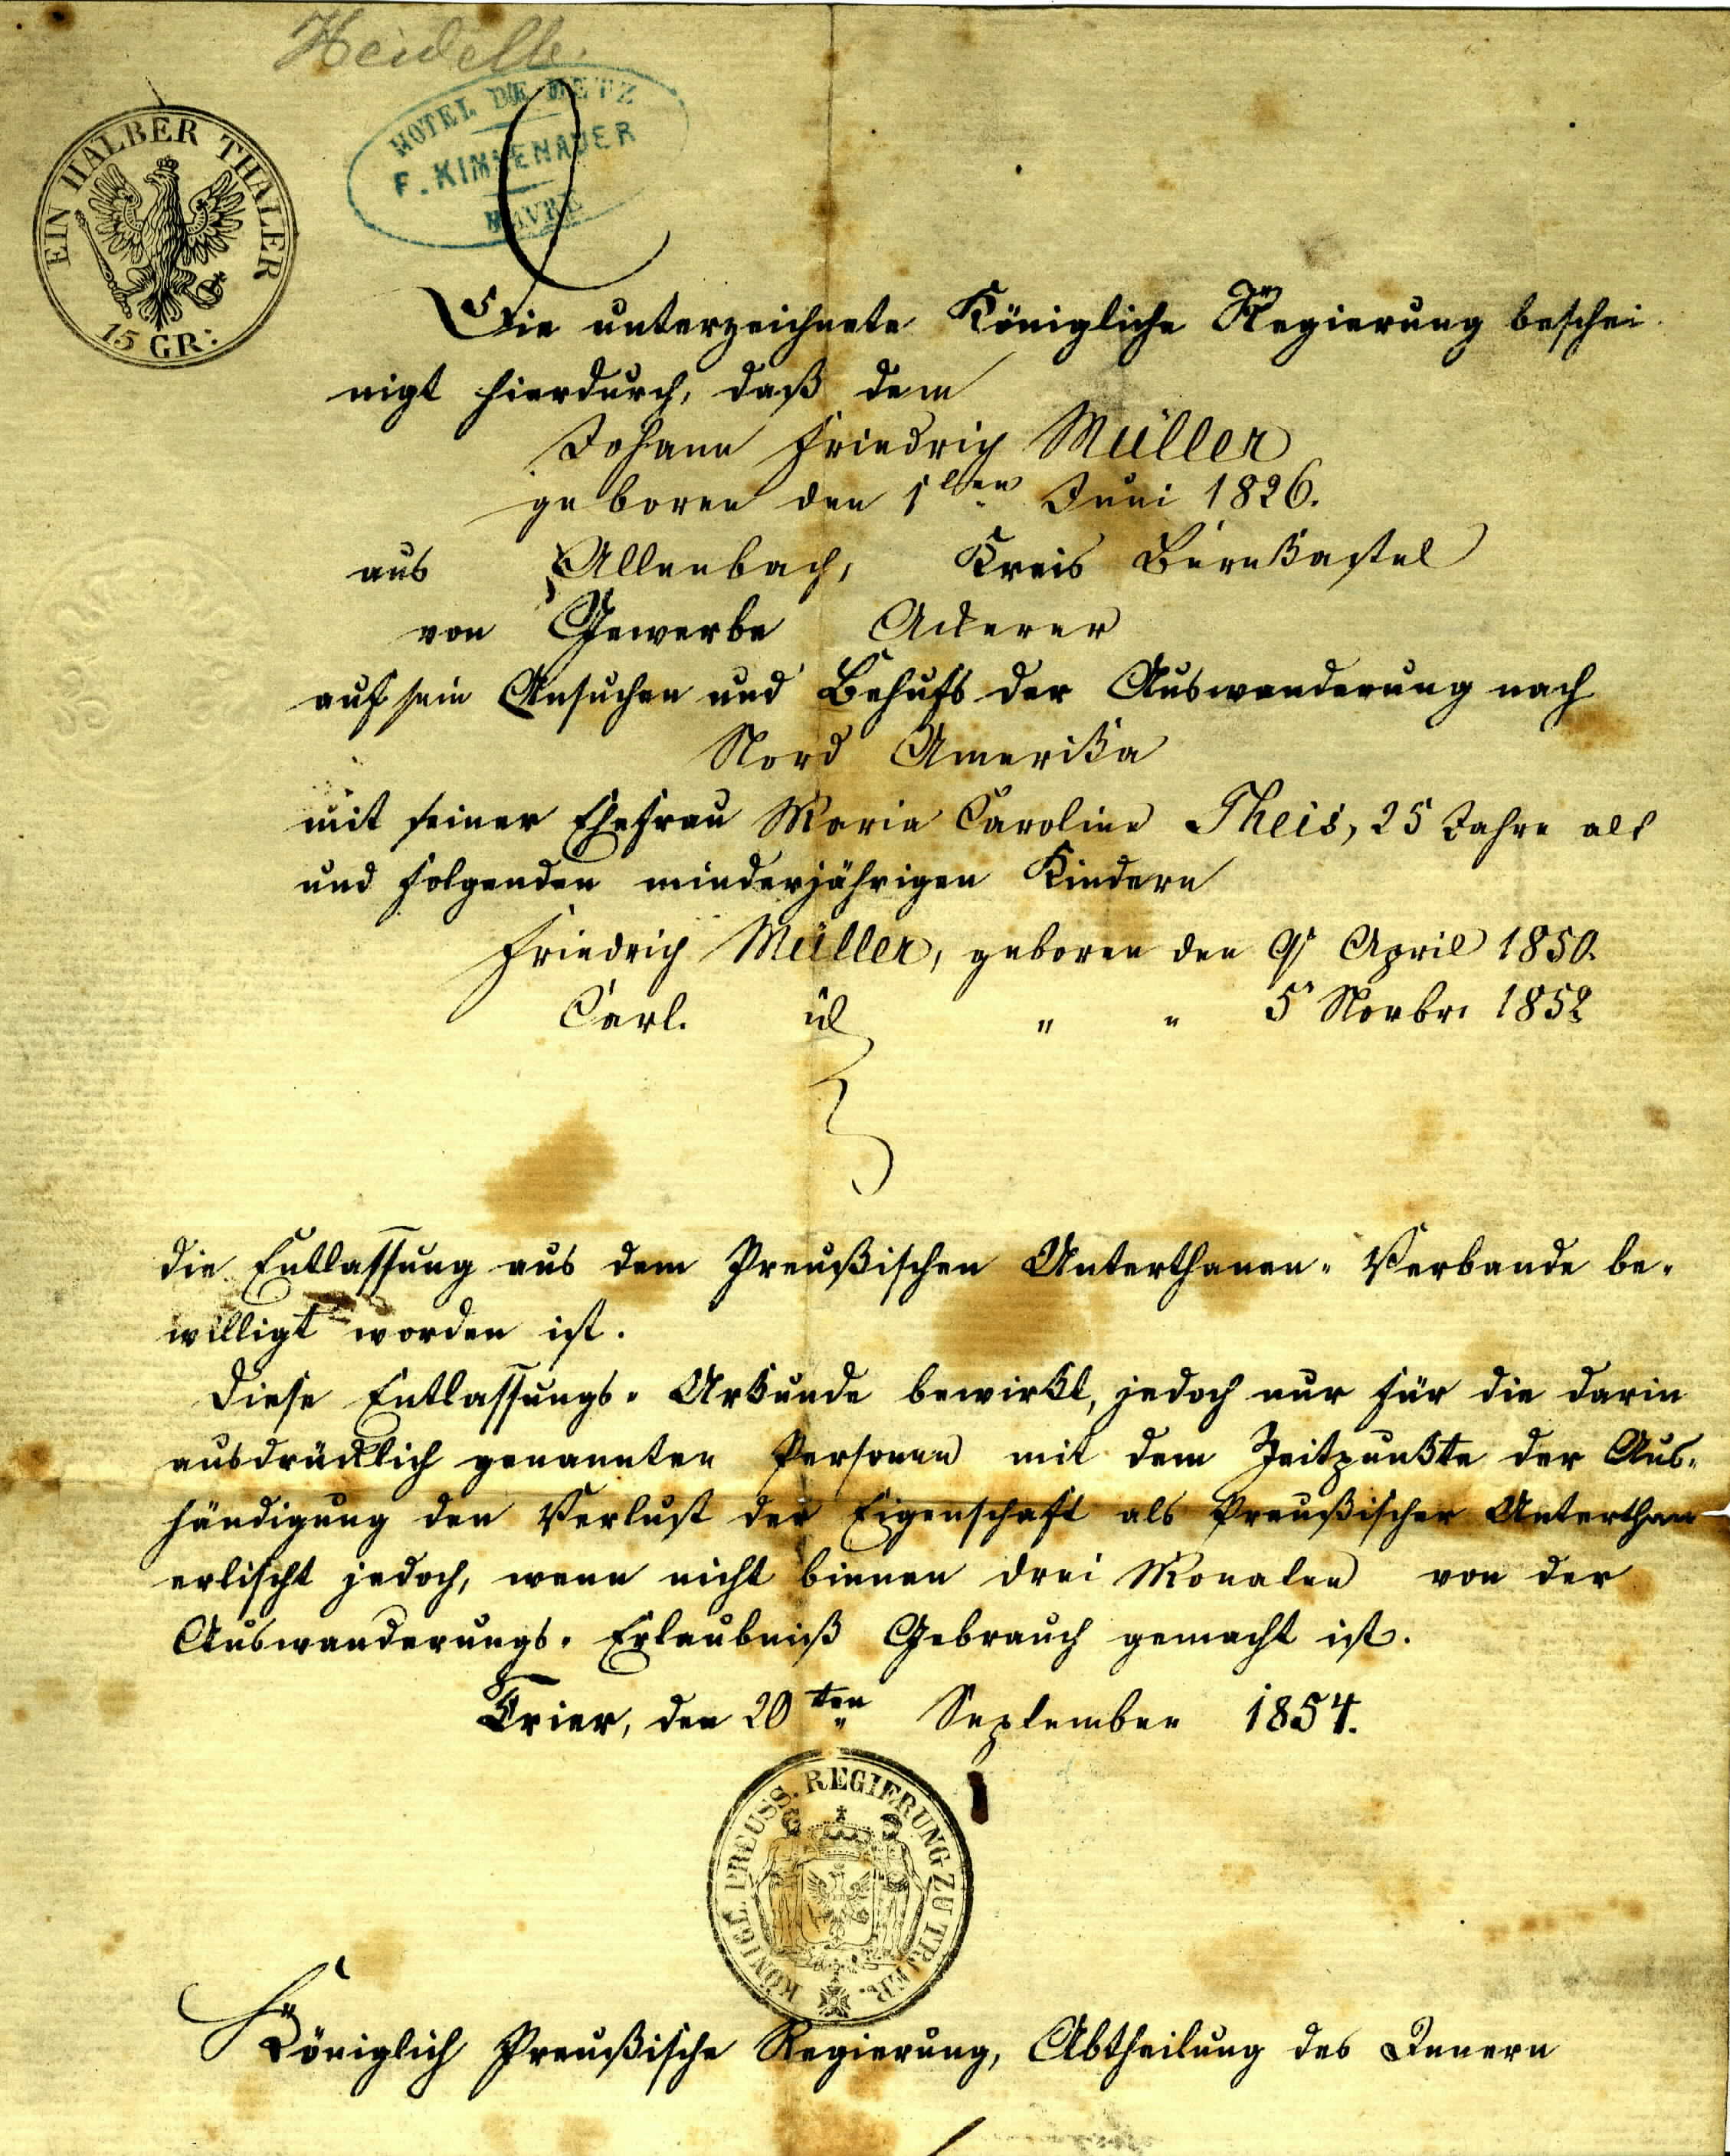 Heidelb.
EIN HALBER THALER
15 GR:
HOTEL DE METZ
F. KIMMENAUER
HAVRE
Die unterzeichnete Königliche Regierung beschei
nigt hierdurch, daß dem
Johann Friedrich Müller
geboren den 1ten Juni 1826.
aus Allenbach, Kreis Bernkastel
von Gewerbe Ackerer
auf sein Ansuchen und Behufs der Auswanderung nach
Nord Amerika
mit seiner Ehefrau Maria Caroline Theis, 25 Jahre alt
und folgenden minderjährigen Kindern
Friedrich Müller, geboren den 9 April 1850.
Carl. id " " 5 Novbr. 1852
die Entlassung aus dem Preußischen Unterthanen-Verbande be-
willigt worden ist.
Diese Entlassungs-Urkunde bewirkt, jedoch nur für die darin
ausdrücklich genannten Personen mit dem Zeitpunkte der Aus-
händigung den Verlust der Eigenschaft als Preußischer Unterthan
erlischt jedoch, wenn nicht binnen drei Monaten von der
Auswanderungs-Erlaubniß Gebrauch gemacht ist.
Trier, den 20ten September 1854.
KÖNIGL. PREUSS. REGIERUNG ZU TRIER.
Königlich Preußische Regierung, Abtheilung des Innern